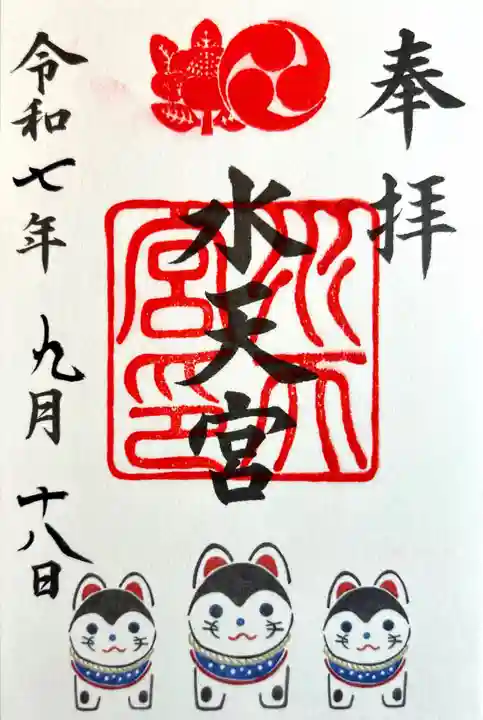 奉拝
水天宮
水天宮印
令和七年九月十八日